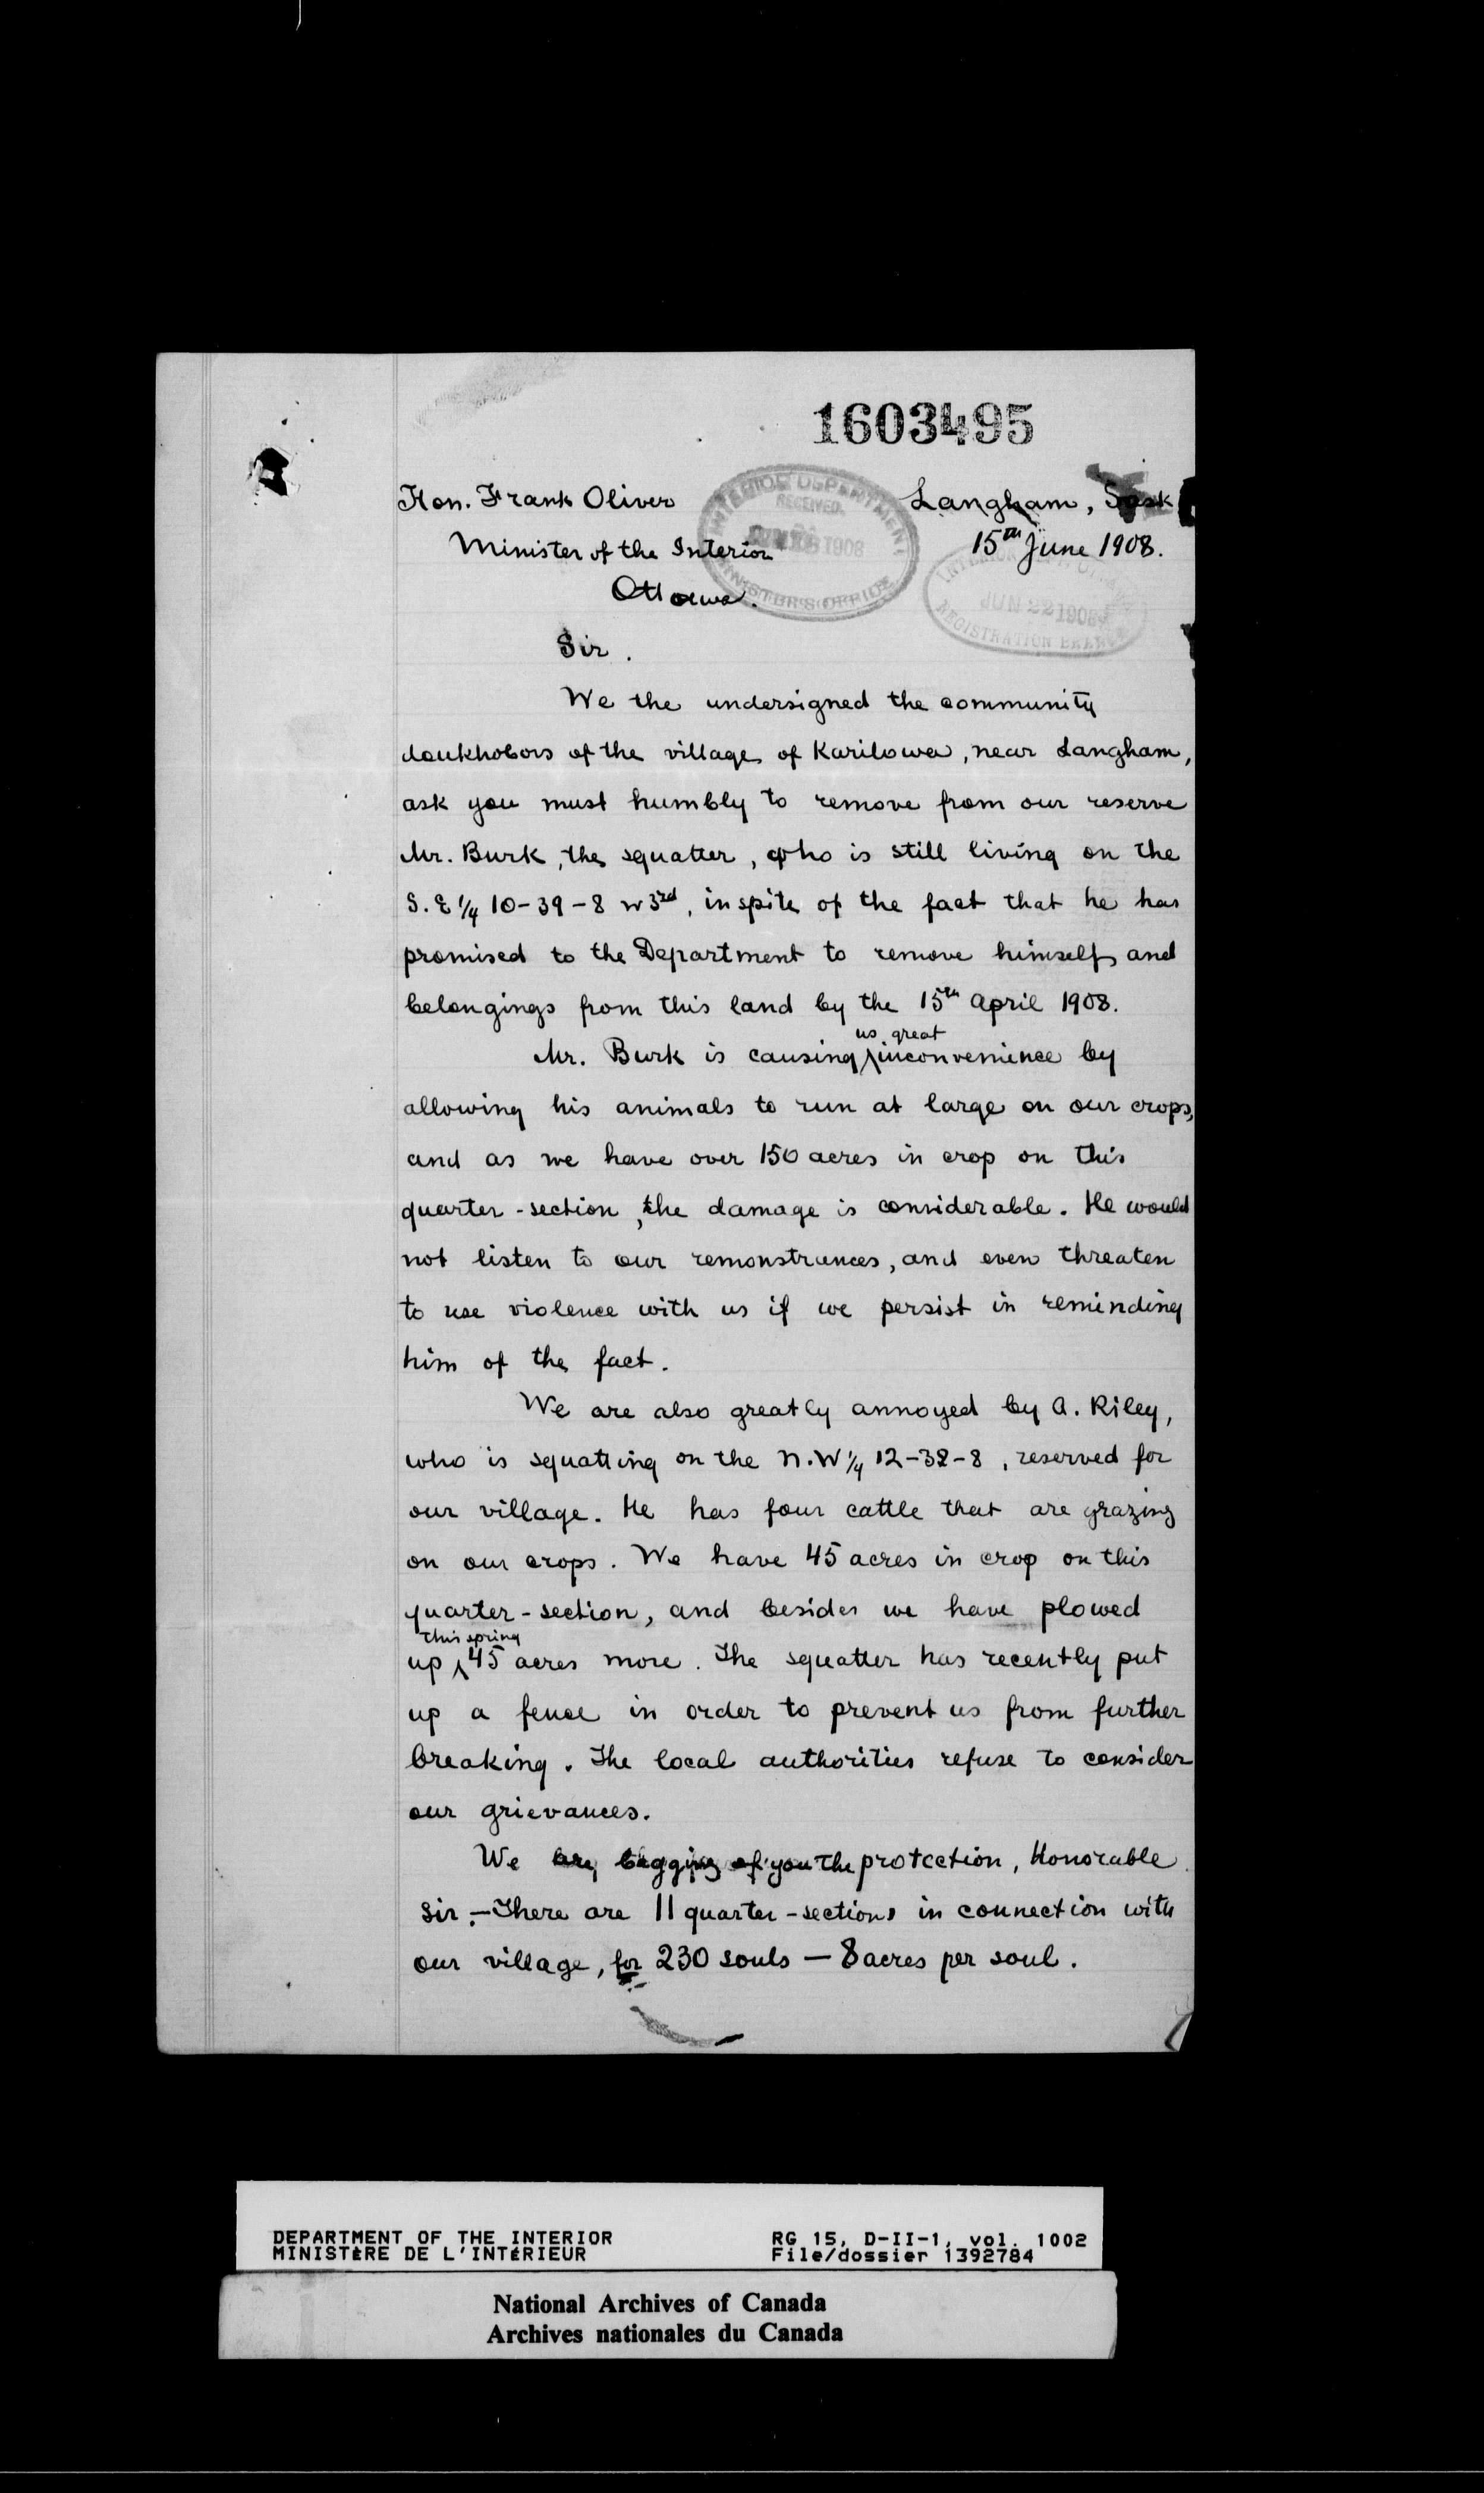 1603495
Hon. Frank Oliver Langham, Sask
Minister of the Interior 15th June 1908.
Ottawa.
INTERIOR DEPARTMENT
RECEIVED
1908
MINISTER'S OFFICE
INTERIOR
JUN 22 1908
REGISTRATION BRANCH
Sir.
We the undersigned the community
doukhobors of the village of Karilowa, near Langham,
ask you must humbly to remove from our reserve
Mr. Burk, the squatter, who is still living on the
S.E 1/4 10-39-8 w 3rd, inspite of the fact that he has
promised to the Department to remove himself and
belongings from this land by the 15th April 1908.
us great
Mr. Burk is causing ^ inconvenience by
allowing his animals to run at large on our crops,
and as we have over 150 acres in crop on this
quarter-section, the damage is considerable. He would
not listen to our remonstrances, and even threaten
to use violence with us if we persist in reminding
him of the fact.
We are also greatly annoyed by A. Riley,
who is squatting on the N.W 1/4 12-38-8, reserved for
our village. He has four cattle that are grazing
on our crops. We have 45 acres in crop on this
quarter-section, and besides we have plowed
this spring
up ^ 45 acres more. The squatter has recently put
up a fence in order to prevent us from further
breaking. The local authorities refuse to consider
our grievances.
We are begging of you the protection, Honorable
Sir.- There are 11 quarter-sections in connection with
our village, for 230 souls — 8 acres per soul.
DEPARTMENT OF THE INTERIOR RG 15, D-II-1, vol. 1002
MINISTÈRE DE L'INTÉRIEUR File/dossier 1392784
National Archives of Canada
Archives nationales du Canada